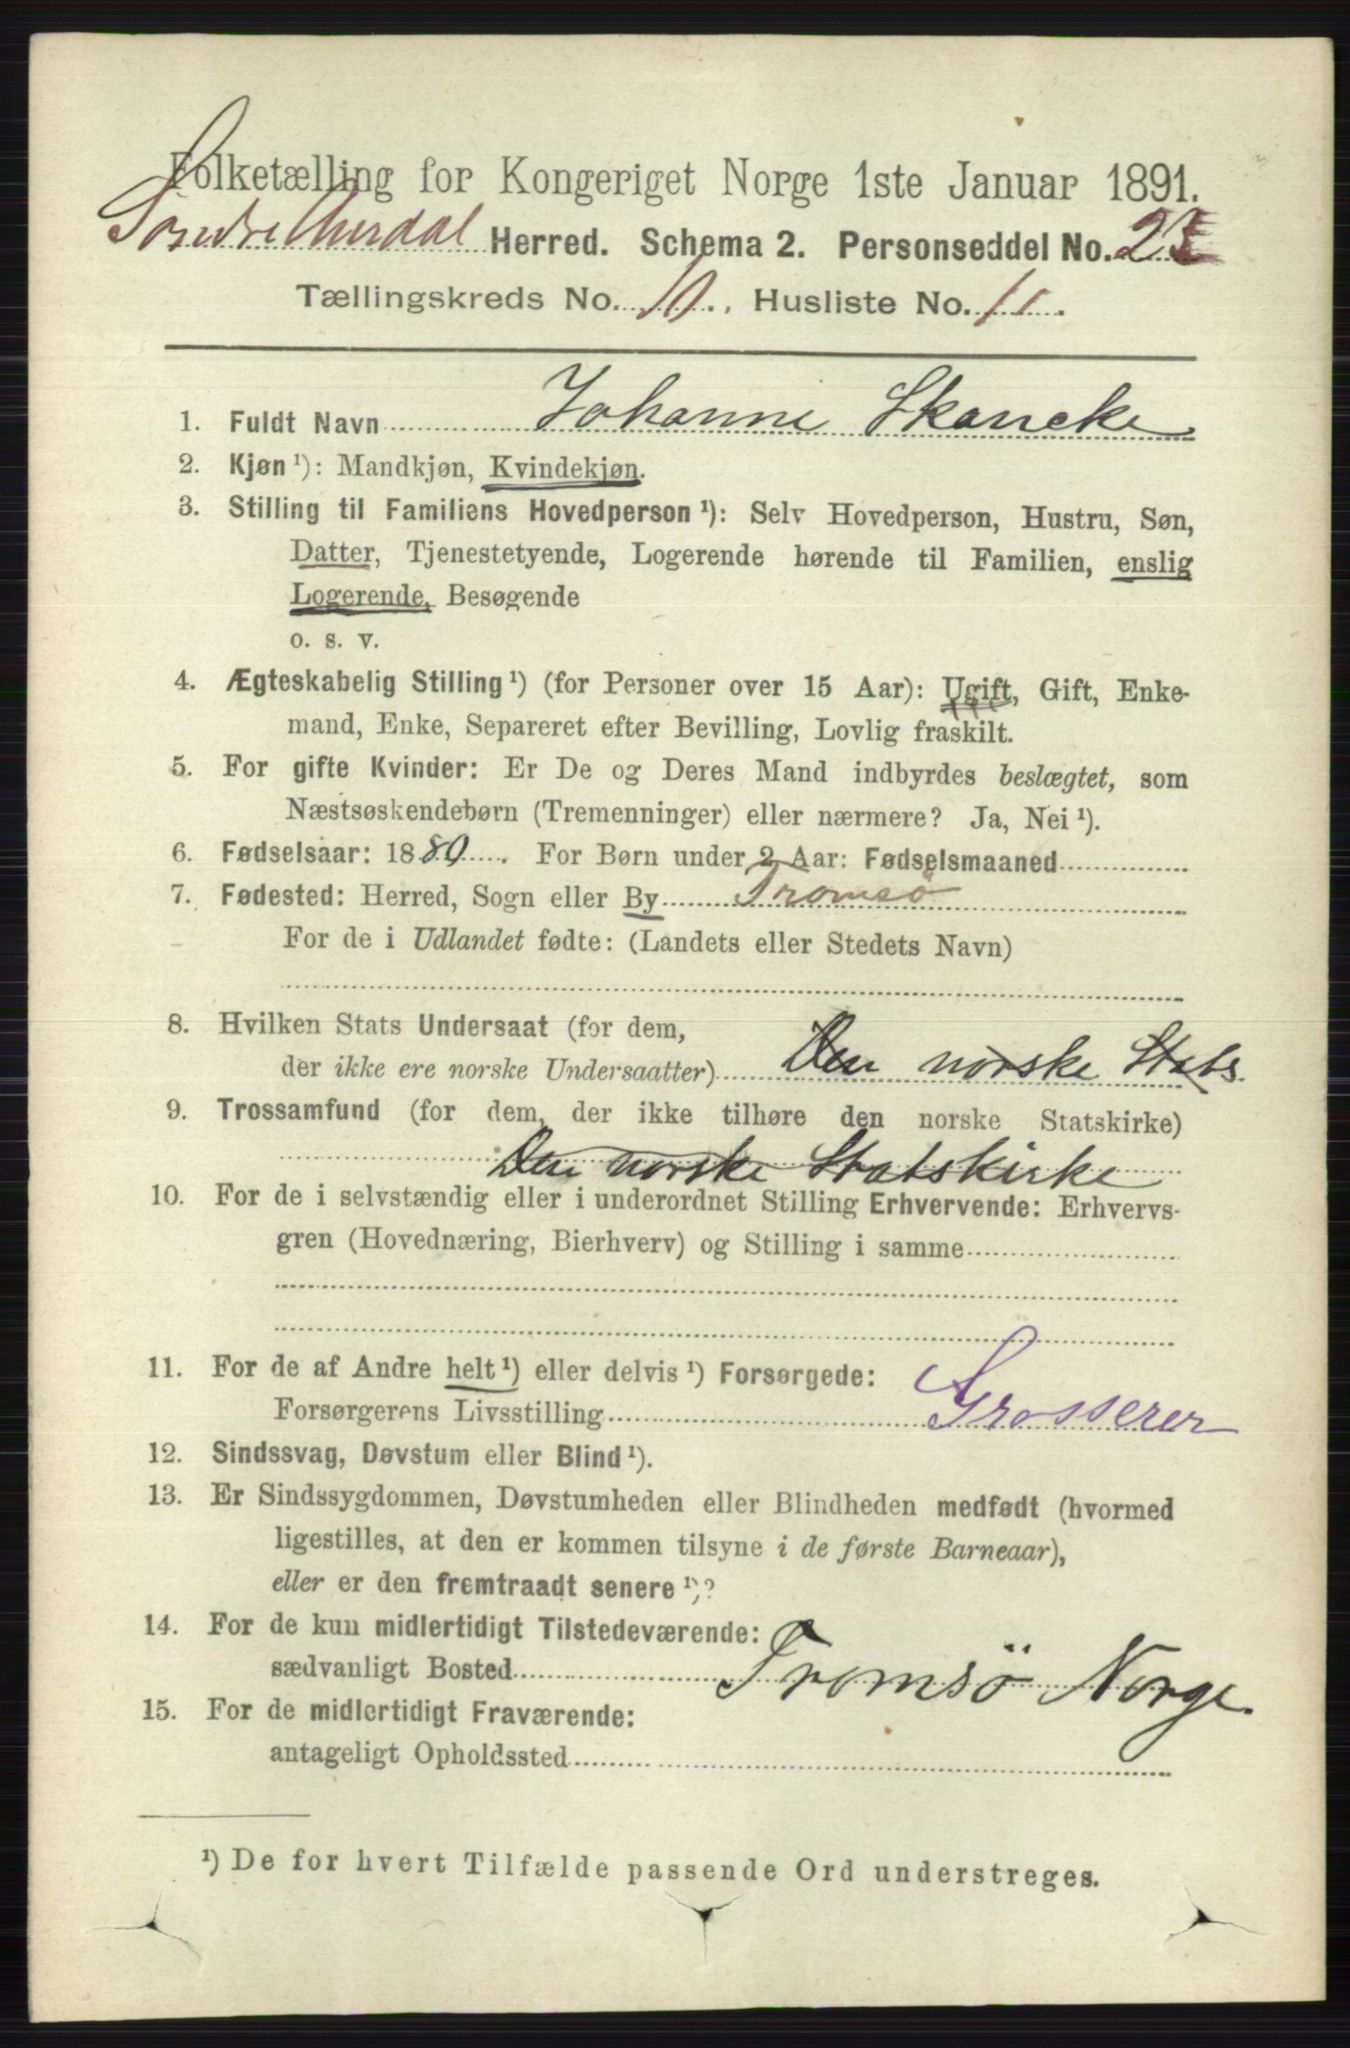 Folketælling for Kongeriget Norge 1ste Januar 1891.
Søndre Aurdal Herred. Schema 2. Personseddel No. 23
Tællingskreds No. 10. Husliste No. 11.
1. Fuldt Navn Johanne Skancke
2. Kjøn ¹): Mandkjøn, Kvindekjøn.
3. Stilling til Familiens Hovedperson ¹): Selv Hovedperson, Hustru, Søn,
Datter, Tjenestetyende, Logerende hørende til Familien, enslig
Logerende, Besøgende
o. s. v.
4. Ægteskabelig Stilling ¹) (for Personer over 15 Aar): Ugift, Gift, Enke-
mand, Enke, Separeret efter Bevilling, Lovlig fraskilt.
5. For gifte Kvinder: Er De og Deres Mand indbyrdes beslægtet, som
Næstsøskendebørn (Tremenninger) eller nærmere? Ja, Nei ¹).
6. Fødselsaar: 1880. For Børn under 2 Aar: Fødselsmaaned
7. Fødested: Herred, Sogn eller By Tromsø
For de i Udlandet fødte: (Landets eller Stedets Navn)
8. Hvilken Stats Undersaat (for dem,
der ikke ere norske Undersaatter) Den norske Stats.
9. Trossamfund (for dem, der ikke tilhøre den norske Statskirke)
Den norske Statskirke
10. For de i selvstændig eller i underordnet Stilling Erhvervende: Erhvervs-
gren (Hovednæring, Bierhverv) og Stilling i samme
11. For de af Andre helt ¹) eller delvis ¹) Forsørgede:
Forsørgerens Livsstilling Grosserer
12. Sindssvag, Døvstum eller Blind ¹).
13. Er Sindssygdommen, Døvstumheden eller Blindheden medfødt (hvormed
ligestilles, at den er kommen tilsyne i de første Barneaar),
eller er den fremtraadt senere ¹)?
14. For de kun midlertidigt Tilstedeværende:
sædvanligt Bosted Tromsø Norge.
15. For de midlertidigt Fraværende:
antageligt Opholdssted
¹) De for hvert Tilfælde passende Ord understreges.